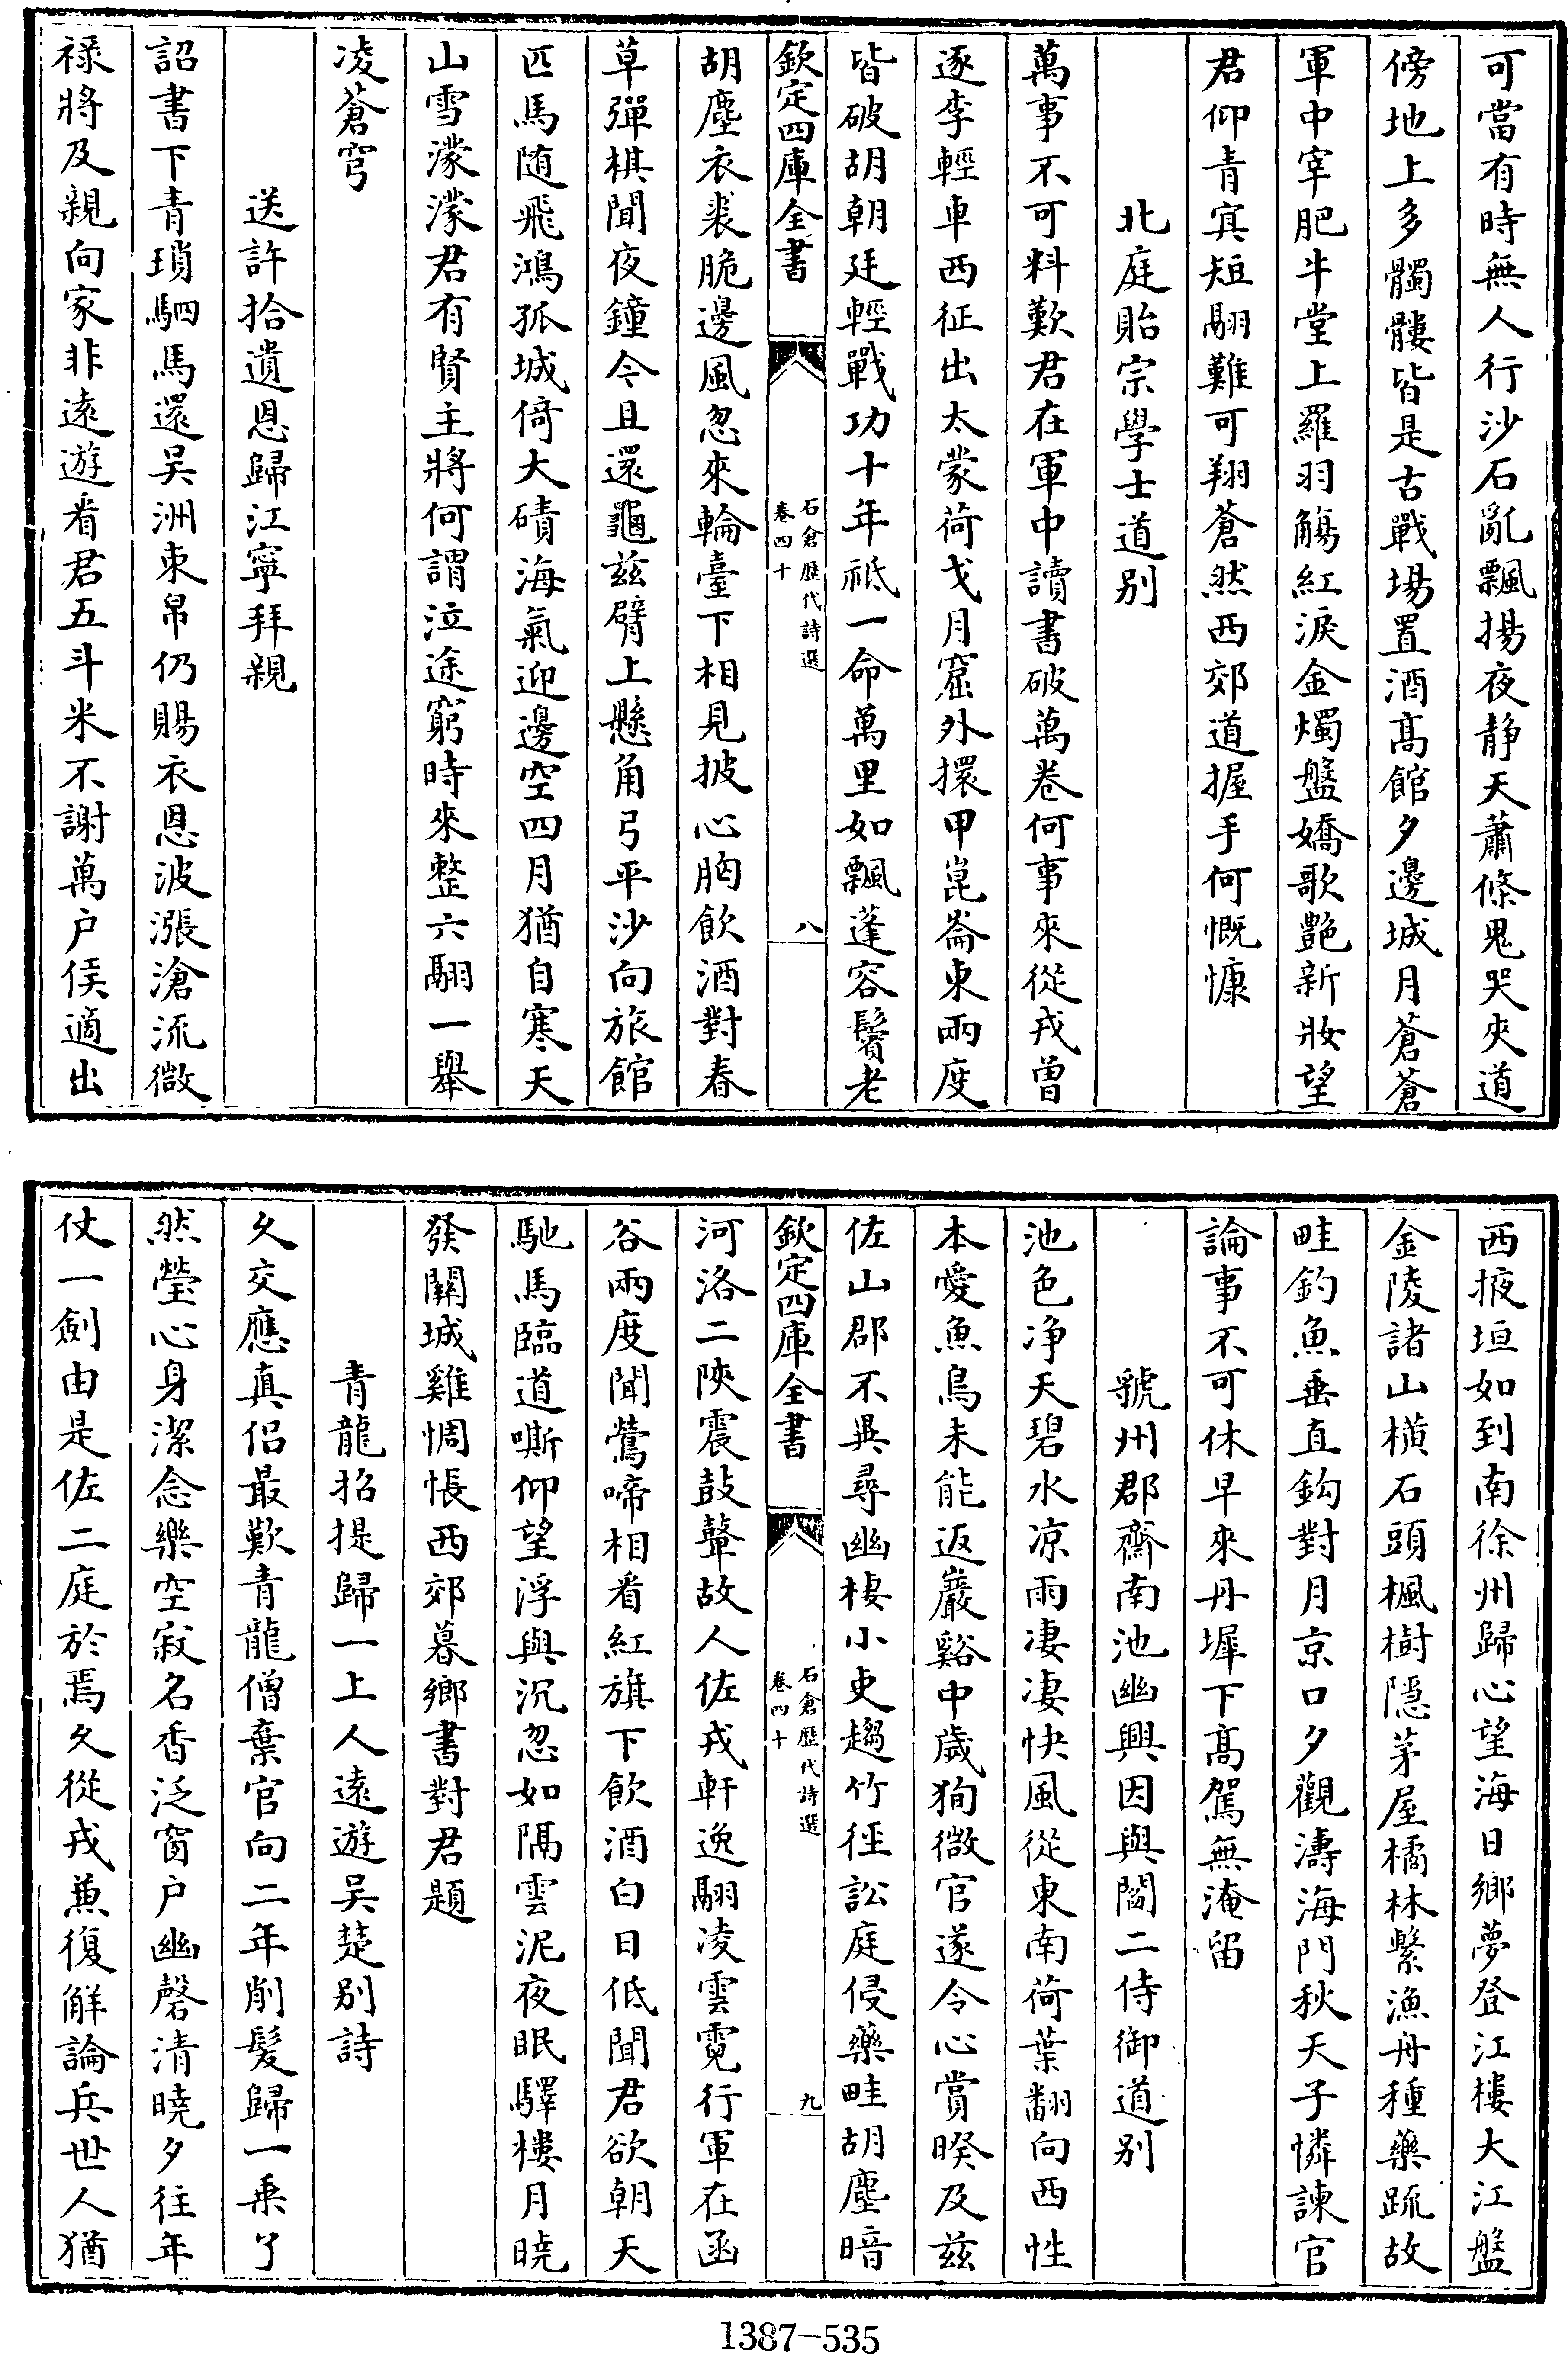 可當有時無人行沙石亂飄揚夜静天蕭條鬼哭夾道
傍地上多髑髏皆是古戰場置酒髙館夕邊城月蒼蒼
軍中宰肥牛堂上羅羽觴紅淚金燭盤嬌歌艶新妝望
君仰青冥短翮難可翔蒼然西郊道握手何慨慷
北庭貽宗學士道别
萬事不可料歎君在軍中讀書破萬卷何事來從戎曾
逐李輕車西征出太蒙荷戈月窟外擐甲崑崙東兩度
皆破胡朝廷輕戰功十年祗一命萬里如飄蓬容鬢老
欽定四庫全書
石倉歴代詩選
卷四十
八
胡塵衣裘脆邊風忽來輪臺下相見披心胸飲酒對春
草彈棋聞夜鐘今且還龜兹臂上懸角弓平沙向旅館
匹馬随飛鴻孤城倚大磧海氣迎邊空四月猶自寒天
山雪濛濛君有賢主將何謂泣途窮時來整六翮一舉
凌蒼穹
送許拾遺恩歸江寧拜親
詔書下青瑣駟馬還吴洲束帛仍賜衣恩波漲滄流微
禄將及親向家非逺遊看君五斗米不謝萬户侯適出
西掖垣如到南徐州歸心望海日鄉夢登江樓大江盤
金陵諸山横石頭楓樹隠茅屋橘林繫漁舟種藥疏故
畦釣魚垂直鈎對月京口夕觀濤海門秋天子憐諫官
論事不可休早來丹墀下髙駕無淹留
虢州郡齋南池幽興因與閻二侍御道别
池色净天碧水凉雨凄凄快風從東南荷葉翻向西性
本愛魚鳥未能返巖谿中歲狥微官遂令心賞暌及兹
佐山郡不異尋幽棲小吏趨竹徑訟庭侵藥畦胡塵暗
欽定四庫全書
石倉歴代詩選
卷四十
九
河洛二陜震鼓鼙故人佐戎軒逸翮凌雲霓行軍在函
谷兩度聞鶯啼相看紅旗下飲酒白日低聞君欲朝天
馳馬臨道嘶仰望浮與沉忽如隔雲泥夜眠驛樓月曉
發關城雞惆悵西郊暮鄉書對君題
青龍招提歸一上人逺遊吴楚别詩
久交應真侣最歎青龍僧棄官向二年削髮歸一乗了
然瑩心身潔念樂空寂名香泛窗户幽磬清曉夕往年
仗一劍由是佐二庭於焉久從戎兼復解論兵世人猶
1387-535